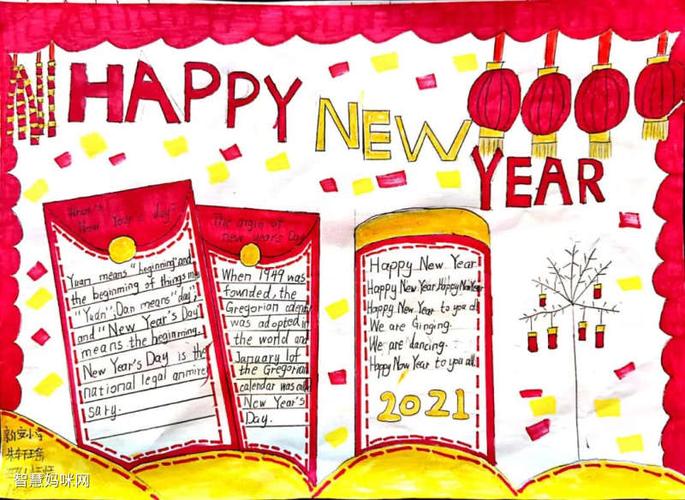 HAPPY
NEW
YEAR
New Year's day
Yuan means "beginning" and
the beginning of things
"Yuan"; Dan means "day";
and "New Year's Day
means the beginning.
New Year's Day is the
national legal
sary.
The origin of
new year's Day
When 1949 was
founded, the
Gregorian
was adopted in
the world and
January 1 of
the Gregorian
calendar was
New Year's
Day.
Happy New Year
Happy New Year Happy New Year
Happy New Year to you
We are Ginging.
We are dancing.
Happy New Year to you all.
2021
智慧妈咪网